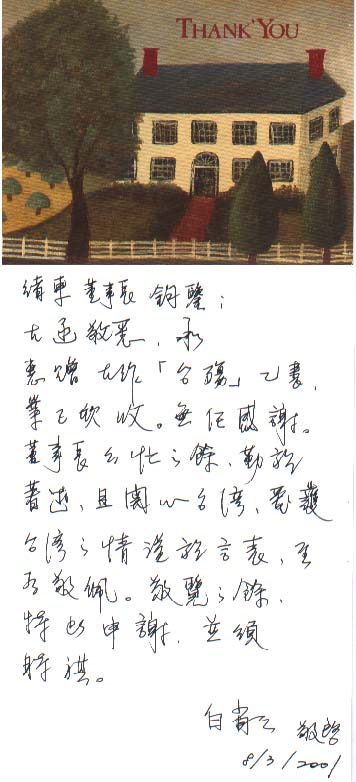 THANK YOU
董事長 鈞鑒：
大函敬悉，承
惠贈大作「台殤」乙書，
業已欣收。無任感謝。
董事長公忙之餘，勤於
著述，且關心台灣，愛護
台灣之情溢於言表，至
為敬佩。敬覽之餘，
特此申謝，並頌
時祺。
白省三 敬啓
8/3/2001